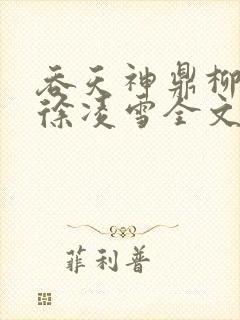 吞天神鼎柳
徐凌雪全文
菲利普